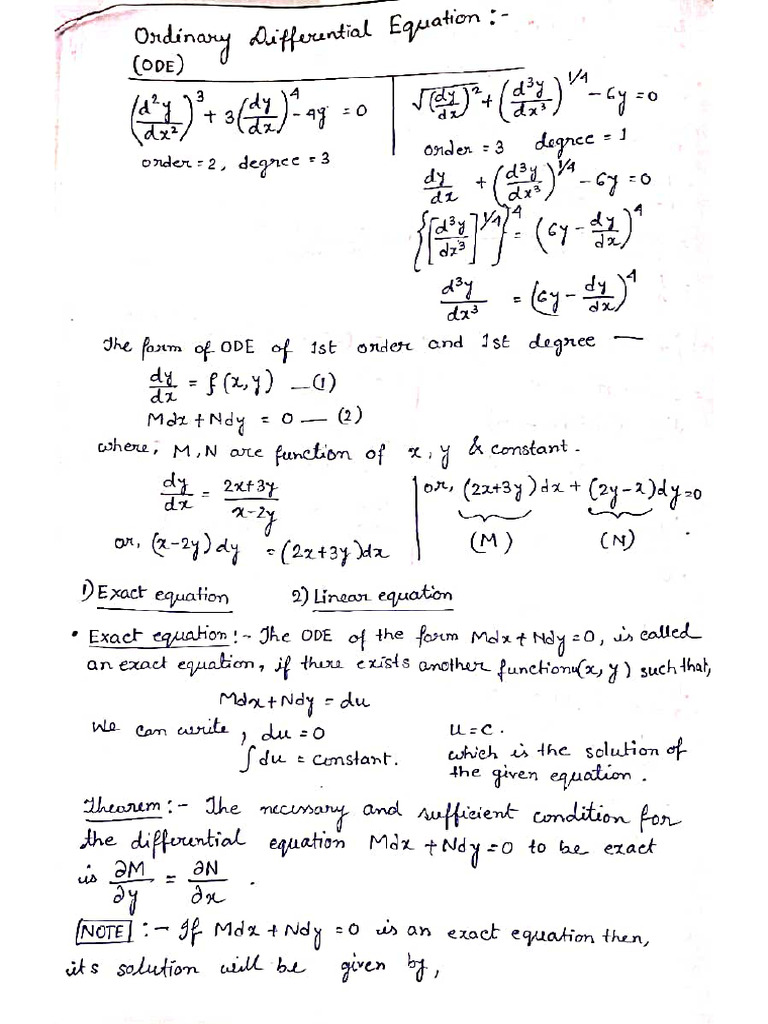 Ordinary Differential Equation :-
(ODE)
(d²y/dx²)³ + 3(dy/dx)⁴ - 4y = 0
order = 2, degree = 3
√(dy/dx)² + (d³y/dx³)^1/4 - 6y = 0
order = 3 degree = 1
dy/dx + (d³y/dx³)^1/4 - 6y = 0
{[d³y/dx³]^1/4}⁴ = (6y - dy/dx)⁴
d³y/dx³ = (6y - dy/dx)⁴
The form of ODE of 1st order and 1st degree —
dy/dx = f(x,y) — (1)
Mdx + Ndy = 0 — (2)
where, M, N are function of x, y & constant.
dy/dx = 2x+3y/x-2y
or, (x-2y)dy = (2x+3y)dx
or, (2x+3y)dx + (2y-x)dy = 0
(M) (N)
1) Exact equation 2) Linear equation
• Exact equation :- The ODE of the form Mdx + Ndy = 0, is called
an exact equation, if there exists another function u(x, y) such that,
Mdx + Ndy = du
We can write, du = 0
∫du = constant.
u = c.
which is the solution of
the given equation.
Theorem :- The necessary and sufficient condition for
the differential equation Mdx + Ndy = 0 to be exact
is ∂M/∂y = ∂N/∂x.
NOTE :- If Mdx + Ndy = 0 is an exact equation then,
its solution will be given by,